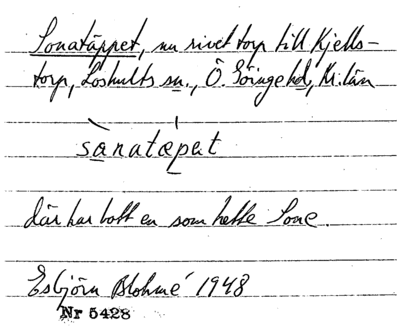 Sonatäppet, nu rivet torp till Kjells-
torp, Loshults sn., Ö. Göinge hd, Kr. län
sanatæpat
där har bott en som hette Sone.
Esbjörn Blohmé 1948
Nr 5428